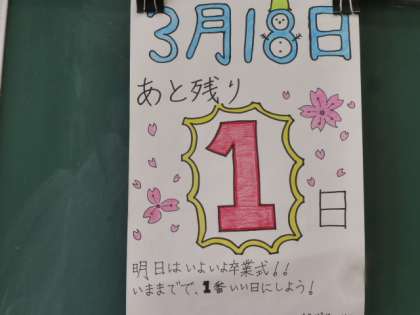 3月18日
あと残り
1
日
明日はいよいよ卒業式!!
いままでで、1番いい日にしよう!